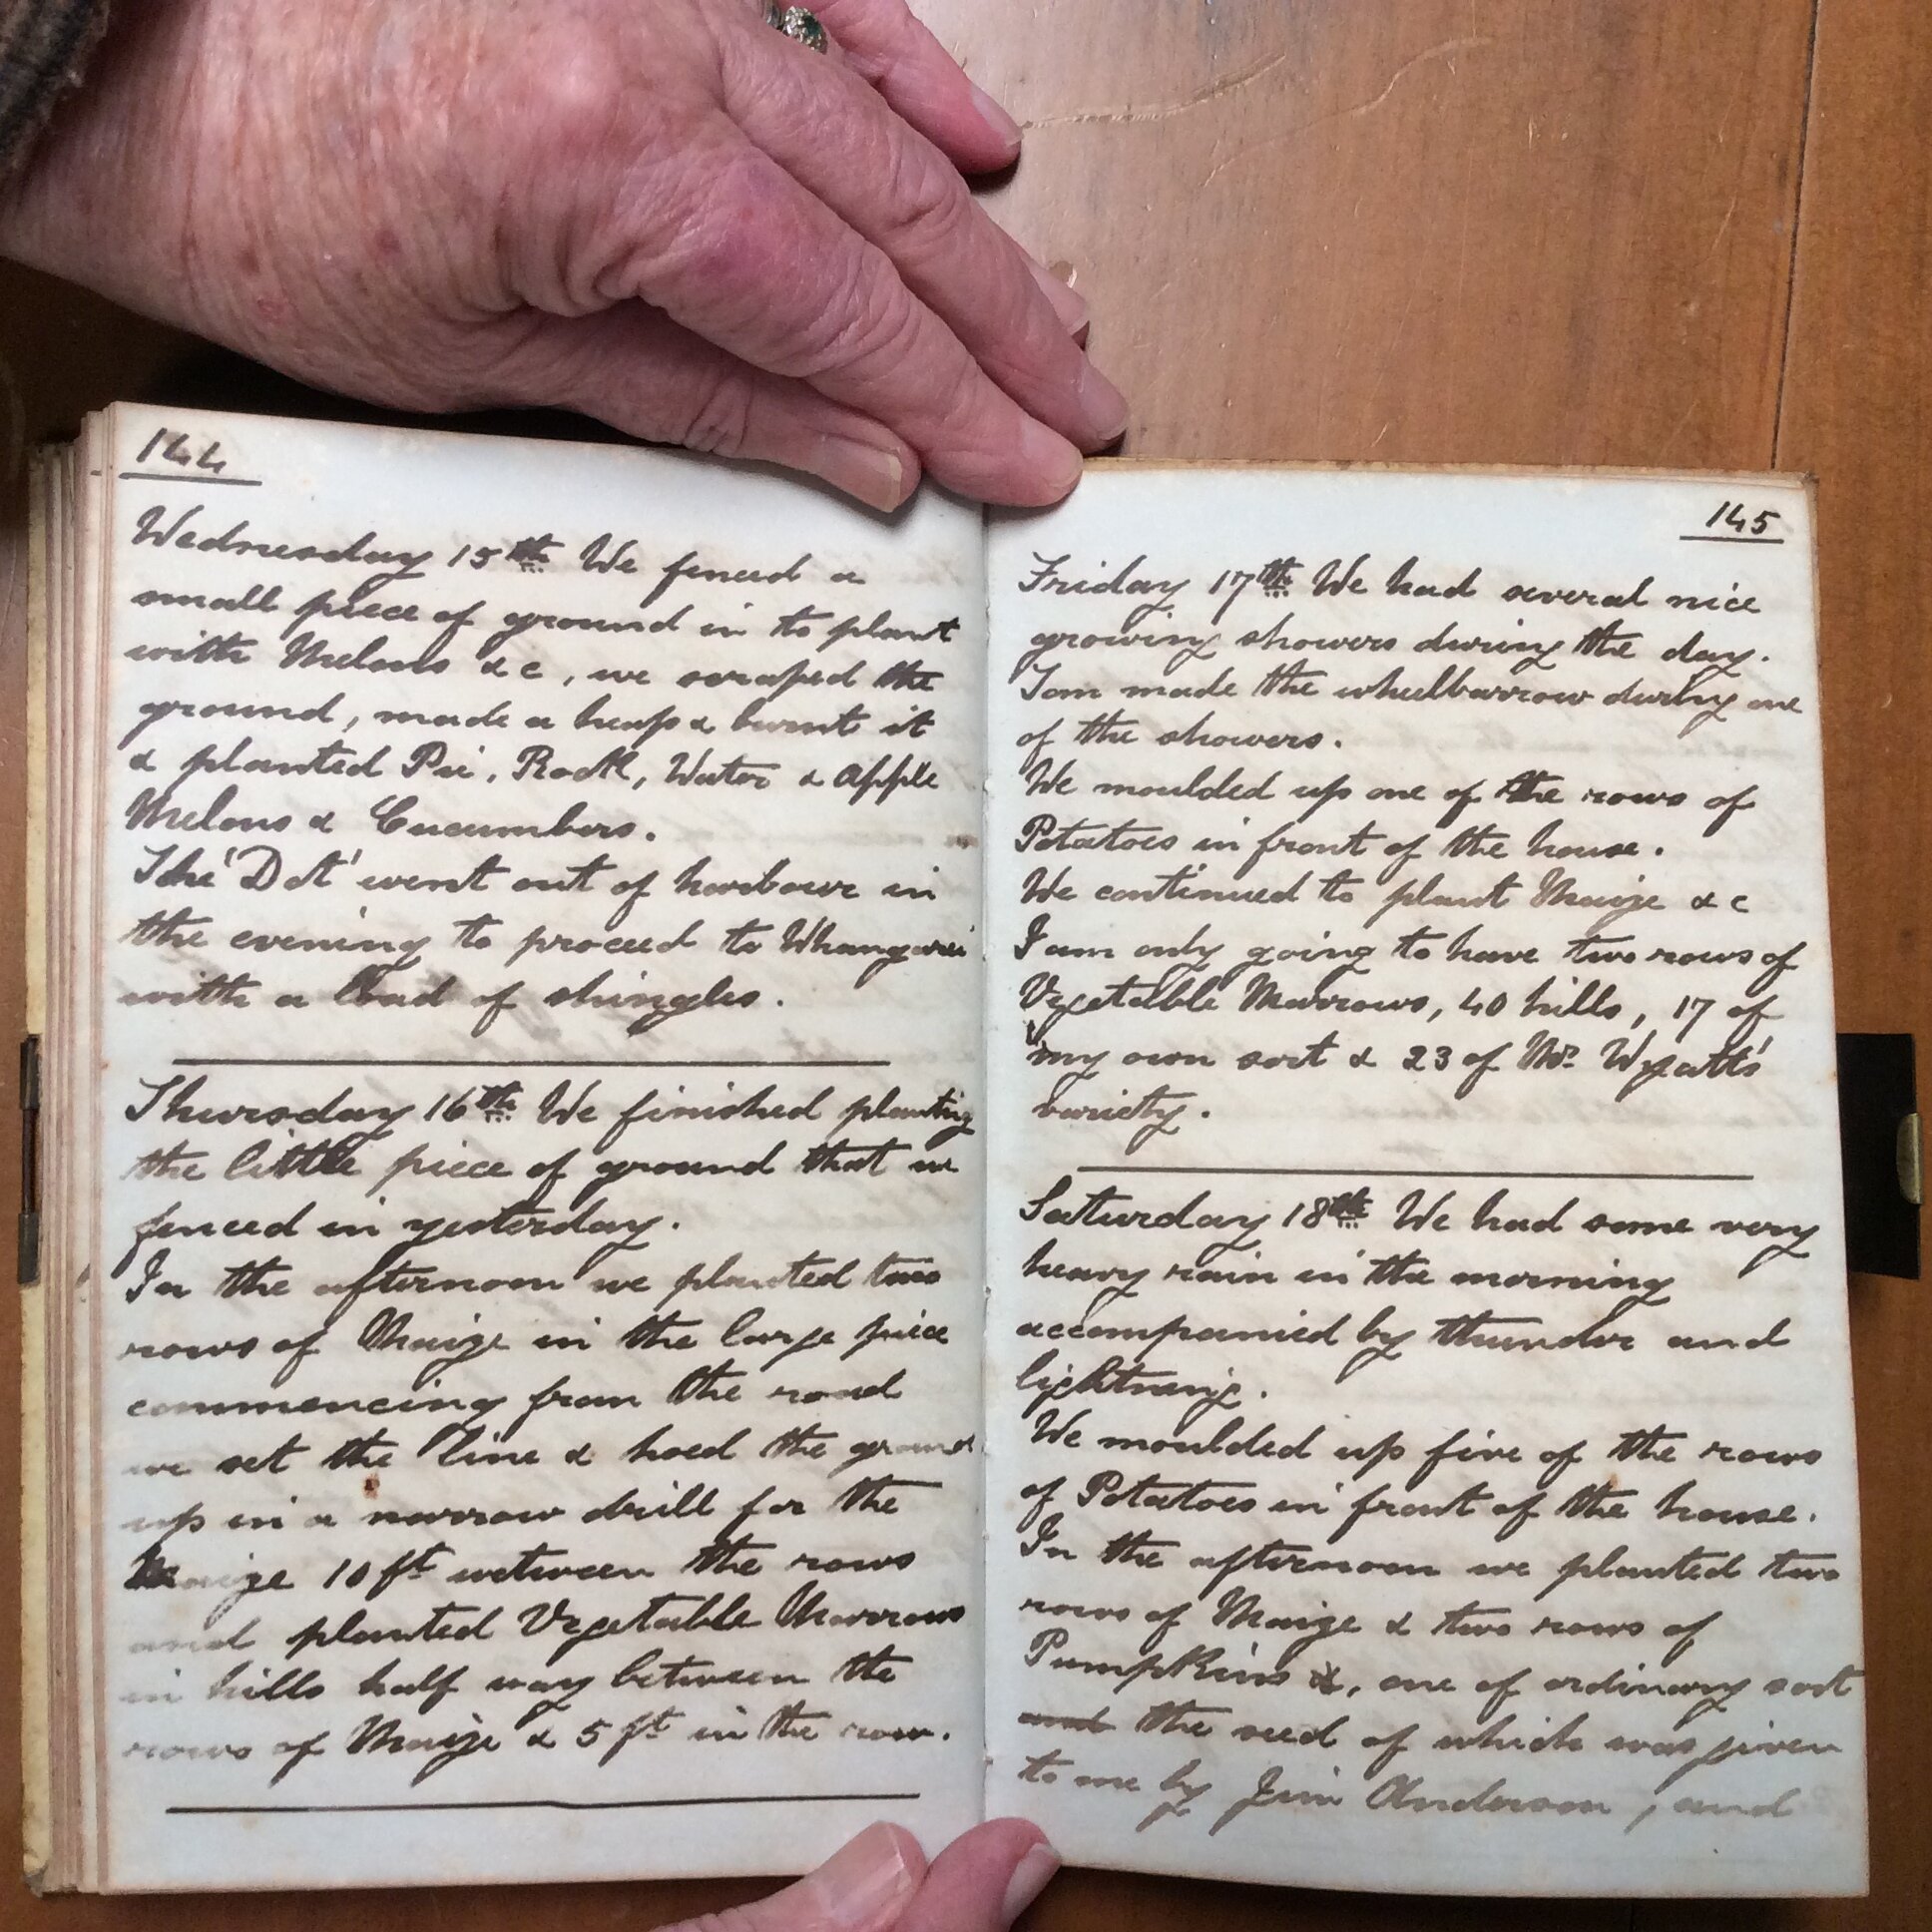 144
Wednesday 15th We fenced a
small piece of ground in to plant
with Melons &c, we scraped the
ground, made a heap & burnt it
& planted Pie, Rock, Water & Apple
Melons & Cucumbers.
The 'Dot' went out of harbour in
the evening to proceed to Whangarei
with a load of shingles.
Thursday 16th We finished planting
the little piece of ground that we
fenced in yesterday.
In the afternoon we planted two
rows of Maize in the large piece
commencing from the road
we set the line & hoed the ground
up in a narrow drill for the
Maize 10 ft between the rows
and planted Vegetable Marrows
in hills half way between the
rows of Maize & 5 ft in the row.
145
Friday 17th We had several nice
growing showers during the day.
Tom made the wheelbarrow during one
of the showers.
We moulded up one of the rows of
Potatoes in front of the house.
We continued to plant Maize &c
I am only going to have two rows of
Vegetable Marrows, 40 hills, 17 of
my own sort & 23 of Mr. Wyatt's
variety.
Saturday 18th We had some very
heavy rain in the morning
accompanied by thunder and
lightning.
We moulded up five of the rows
of Potatoes in front of the house.
In the afternoon we planted two
rows of Maize & two rows of
Pumpkins &, one of ordinary sort
and the seed of which was given
to me by Jim Anderson, and